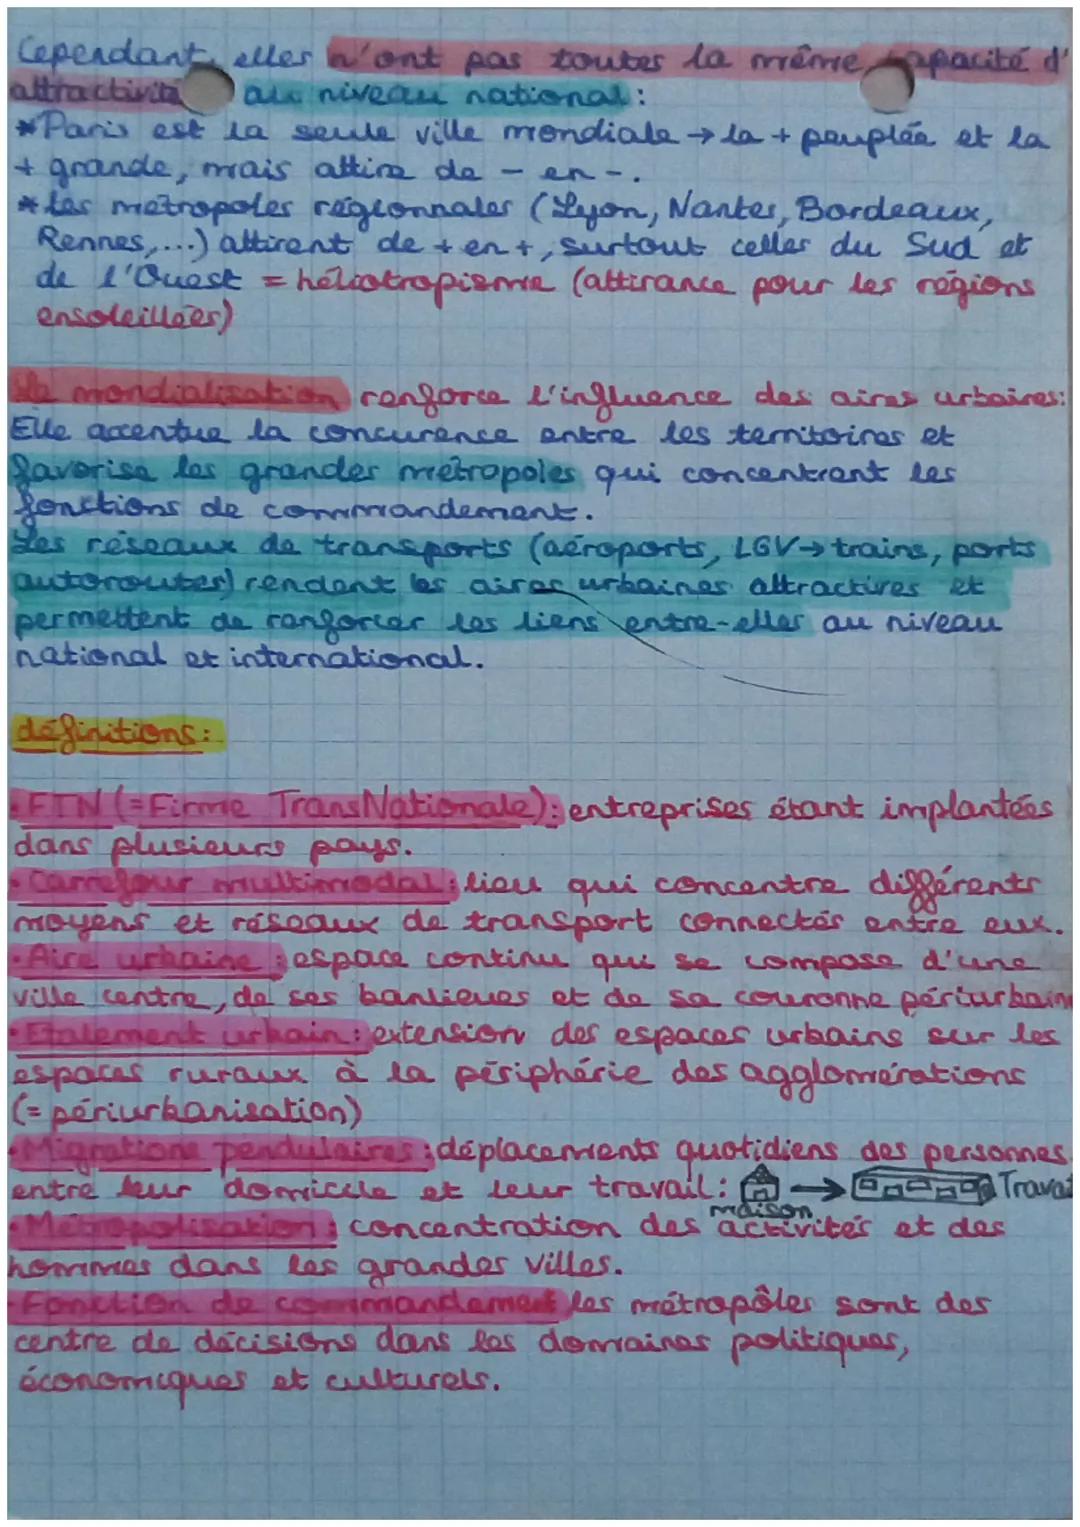 Cependant, elles n'ont pas toutes la même capacité d'
attractivité au niveau national :
*Paris est la seule ville mondiale → la + peuplée et la
+ grande, mais attire de - en -.
*Les métropoles régionnales (Lyon, Nantes, Bordeaux,
Rennes,...) attirent de + en +, surtout celles du Sud et
de l'Ouest = héliotropisme (attirance pour les régions
ensoleillées)
La mondialisation renforce l'influence des aires urbaines:
Elle accentue la concurence entre les territoires et
favorise les grandes métropoles qui concentrent les
fonctions de commandement.
Les réseaux de transports (aéroports, LGV→ trains, ports
autoroutes) rendent les aires urbaines attractives et
permettent de renforcer les liens entre-elles au niveau
national et international.
définitions :
•FTN (=Firme TransNationale): entreprises étant implantées
dans plusieurs pays.
•Carrefour multimodal: lieu qui concentre différents
moyens et réseaux de transport connectés entre eux.
•Aire urbaine : espace continu qui se compose d'une
ville centre, de ses banlieues et de sa couronne périurbain
•Etalement urbain: extension des espaces urbains sur les
espaces ruraux à la périphérie des agglomérations
(= périurbanisation)
•Migrations pendulaires : déplacements quotidiens des personnes
entre leur domicile et leur travail : → Travai
maison
•Métropolisation : concentration des activités et des
hommes dans les grandes villes.
•Fonction de commandement les métropôles sont des
centre de décisions dans les domaines politiques,
économiques et culturels.